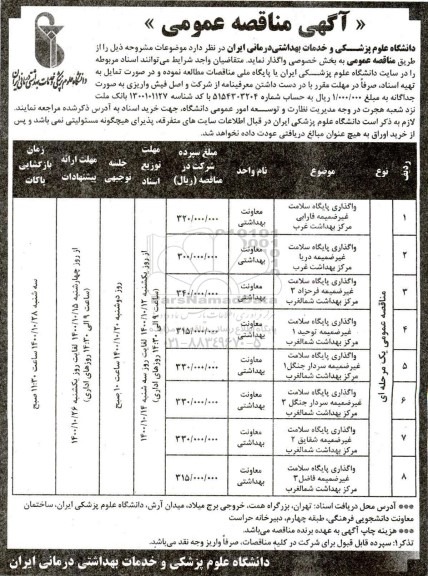 « آگهی مناقصه عمومی »
دانشگاه علوم پزشکی و خدمات بهداشتی درمانی ایران
دانشگاه علوم پزشـــکی و خدمات بهداشتی‌درمانی ایران در نظر دارد موضوعات مشروحه ذیل را از
طریق مناقصه عمومی به بخش خصوصی واگذار نماید. متقاضیان واجد شرایط می‌توانند اسناد مربوطه
را در سایت دانشگاه علوم پزشــکی ایران یا پایگاه ملی مناقصات مطالعه نموده و در صورت تمایل به
تهیه اسناد، صرفاً در مهلت مقرر با در دست داشتن معرفینامه از شرکت و اصل فیش واریزی به صورت
جداگانه به مبلغ ۱/۰۰۰/۰۰۰ ریال به حساب شماره ۵۱۵۴۳۰۳۲۰۴ با کد شناسه ۱۳۰۰۱۰۱۱۲۷ بانک ملت
نزد شعبه هجرت در وجه مدیریت نظارت و توسـعه امور عمومی دانشگاه، جهت خرید اسناد به آدرس ذکرشده مراجعه نمایند.
لازم به ذکر است دانشگاه علوم پزشکی ایران در قبال اطلاعات سایت های متفرقه، پذیرای هیچگونه مسئولیتی نمی باشد و پس
از خرید اوراق به هیچ عنوان مبالغ دریافتی عودت داده نخواهد شد.
ردیف نوع موضوع نام واحد مبلغ سپرده شرکت در مناقصه (ریال) مهلت توزیع اسناد جلسه توجیهی مهلت ارائه پیشنهادات زمان بازگشایی پاکات
۱ واگذاری پایگاه سلامت غیرضمیمه فارابی مرکز بهداشت غرب معاونت بهداشتی ۳۲۰/۰۰۰/۰۰۰
۲ واگذاری پایگاه سلامت غیرضمیمه دریا مرکز بهداشت غرب معاونت بهداشتی ۳۰۰/۰۰۰/۰۰۰
۳ واگذاری پایگاه سلامت غیرضمیمه فرحزاد ۲ مرکز بهداشت شمالغرب معاونت بهداشتی ۳۴۰/۰۰۰/۰۰۰
۴ واگذاری پایگاه سلامت غیرضمیمه توحید ۱ مرکز بهداشت شمالغرب معاونت بهداشتی ۳۱۵/۰۰۰/۰۰۰
۵ واگذاری پایگاه سلامت غیرضمیمه سردار جنگل۱ مرکز بهداشت شمالغرب معاونت بهداشتی ۳۳۰/۰۰۰/۰۰۰
۶ واگذاری پایگاه سلامت غیرضمیمه سردار جنگل ۲ مرکز بهداشت شمالغرب معاونت بهداشتی ۳۳۰/۰۰۰/۰۰۰
۷ واگذاری پایگاه سلامت غیرضمیمه شقایق ۲ مرکز بهداشت شمالغرب معاونت بهداشتی ۳۳۰/۰۰۰/۰۰۰
۸ واگذاری پایگاه سلامت غیرضمیمه فاضل۳ مرکز بهداشت شمالغرب معاونت بهداشتی ۳۱۵/۰۰۰/۰۰۰
مناقصه عمومی یک مرحله ای
از روز یکشنبه ۱۴۰۰/۱۰/۱۲ لغایت روز سه شنبه ۱۴۰۰/۱۰/۱۴ (ساعت ۹ الی ۱۴:۳۰ روزهای اداری)
روز دوشنبه ۱۴۰۰/۱۰/۲۰ ساعت ۱۰ صبح
از روز چهارشنبه ۱۴۰۰/۱۰/۱۵ لغایت روز یکشنبه ۱۴۰۰/۱۰/۲۶ (ساعت ۹ الی ۱۴:۳۰ روزهای اداری)
سه شنبه ۱۴۰۰/۱۰/۲۸ ساعت ۱۱:۳۰ صبح
* آدرس محل دریافت اسناد: تهران، بزرگراه همت، خروجی برج میلاد، میدان آرش، دانشگاه علوم پزشکی ایران، ساختمان
معاونت دانشجویی فرهنگی، طبقه چهارم، دبیرخانه حراست
* هزینه چاپ آگهی به عهده برنده مناقصه می‌باشد.
تذکر۱: سپرده قابل قبول برای شرکت در کلیه مناقصات، صرفاً واریز وجه نقد می‌باشد.
دانشگاه علوم پزشکی و خدمات بهداشتی درمانی ایران